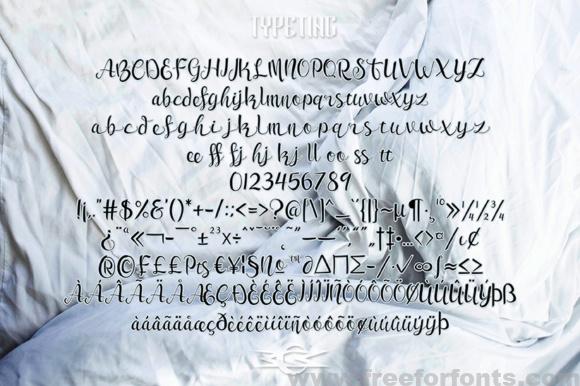 TYPETING
ABCDEFGHIJKLMNOPQRSTUVWXYZ
abcdefghijklmnopqrstuvwxyz
abcdefghijklmnopqrstuvwxyz
ee ff fj hj kj ll oo ss tt
0123456789
!¡,."#$%&'()*+-/:;<=>?@[\]^_¨`{|}~µ¶·¸¹º»¼½¾
¿¨ª«¬-¯°±²³×÷^ˇ˘˙˚˛˜˝–—‘’‚“”„†‡•…‹›¤⁄¢
®©₣£₤₧€¥¹§№™∂∆∏∑−/·√∞∫≈≤≥
ÀÁÂÃÄÅÆÇÐÈÉÊËÌÍÎÏÑÒÓÔÕÖØÙÚÛÜÝÞß
àáâãäåæçðèéêëìíîïñòóôõöøùúûüýÿþ
www.freeforfonts.com